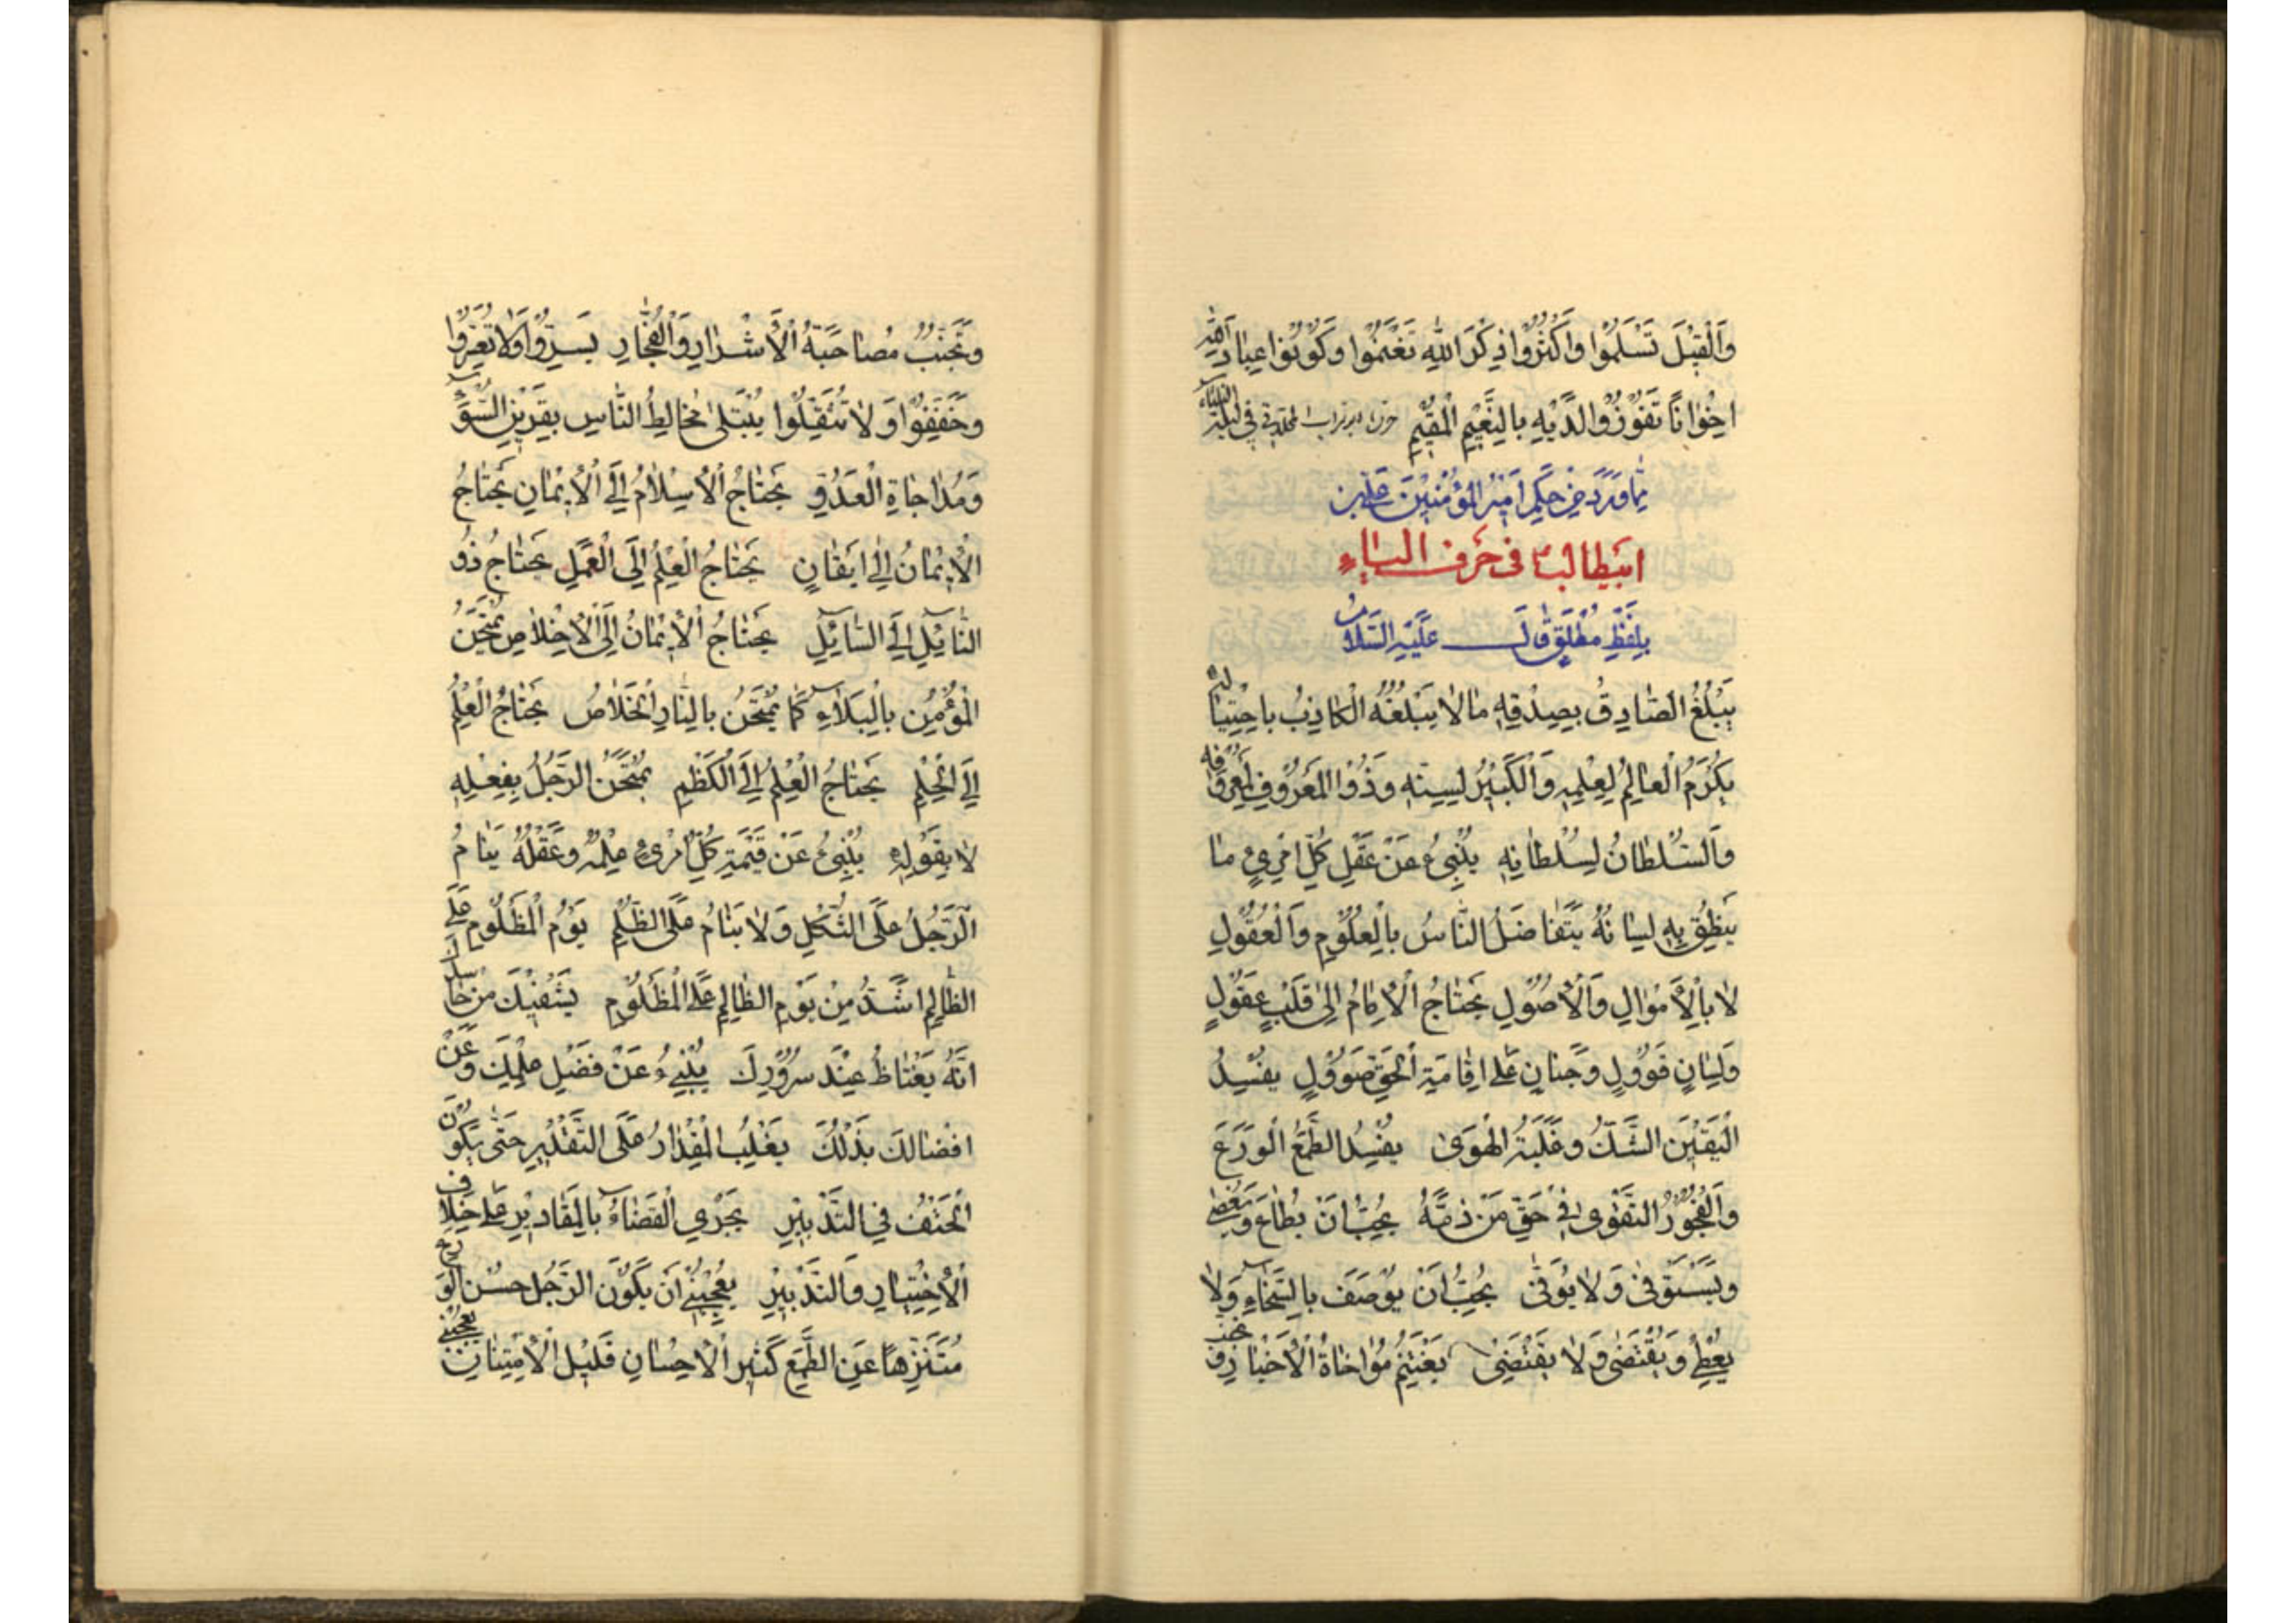 وَالْقِيْلَ تَسْلَمُوا وَاَكْثِرُوا ذِكْرَ اللهِ تَغْنَمُوا وَكُونُوا عِبَادَ اللهِ
اِخْوَانًا تَفُوزُوا لَدَيْهِ بِالنَّعِيْمِ الْمُقِيْمِ
مِمَّا وَرَدَ مِنْ حِكَمِ اَمِيْرِ الْمُؤْمِنِيْنَ عَلِيِّ بْنِ
ابِيطَالِبْ فِي حَرْفِ الْيَاءِ
بِلَفْظِ مُطْلَقٍ قَالَ عَلَيْهِ السَّلَامُ
يَبْلُغُ الصَّادِقُ بِصِدْقِهِ مَا لَا يَبْلُغُهُ الْكَاذِبُ بِاحْتِيَالِهِ
يُكْرَمُ الْعَالِمُ لِعِلْمِهِ وَالْكَبِيْرُ لِسِنِّهِ وَذُو الْمَعْرُوفِ لِمَعْرُوفِهِ
وَالسُّلْطَانُ لِسُلْطَانِهِ يُنْبِئُ عَنْ عَقْلِ كُلِّ امْرِئٍ مَا
يَنْطِقُ بِهِ لِسَانُهُ يَتَفَاضَلُ النَّاسُ بِالْعُلُوْمِ وَالْعُقُوْلِ
لَا بِالْاَمْوَالِ وَالْاُصُوْلِ يَحْتَاجُ الْاِمَامُ اِلَى قَلْبٍ عَقُوْلٍ
وَلِسَانٍ قَوُولٍ وَجَنَانٍ عَلَى اِقَامَةِ الْحَقِّ صَوُولٍ يُفْسِدُ
الْيَقِيْنَ الشَّكُّ وَغَلَبَةُ الْهَوَى يُفْسِدُ الطَّمَعُ الْوَرَعَ
وَالْفُجُوْرُ التَّقْوَى فِي حَقِّ مَنْ ذَمَّهُ يُحِبُّ اَنْ يُطَاعَ وَيَعْصِي
وَيَسْتَوْفِيْ وَلَا يُوْفِيْ يُحِبُّ اَنْ يُوْصَفَ بِالسَّخَاءِ وَلَا
يُعْطِيْ وَيَقْتَضِيْ وَلَا يُقْتَضَى يَغْتَنِمُ مُؤَاخَاةُ الْاَخْيَارِ وَ
وَتُجَنَّبُ مُصَاحَبَةُ الْاَشْرَارِ وَالْفُجَّارِ يَسِّرُوْا وَلَا تُعَسِّرُوْا
وَخَفِّفُوْا وَلَا تُثَقِّلُوْا يُبْتَلَى مُخَالِطُ النَّاسِ بِقَرِيْنِ السُّوْءِ
وَمُدَاجَاةِ الْعَدُوِّ يَحْتَاجُ الْاِسْلَامُ اِلَى الْاِيْمَانِ يَحْتَاجُ
الْاِيْمَانُ اِلَى اِيْقَانٍ يَحْتَاجُ الْعِلْمُ اِلَى الْعَمَلِ يَحْتَاجُ ذُو
النَّائِلِ اِلَى السَّائِلِ يَحْتَاجُ الْاِيْمَانُ اِلَى الْاِخْلَاصِ يُمْتَحَنُ
الْمُؤْمِنُ بِالْبَلَاءِ كَمَا يُمْتَحَنُ بِالنَّارِ الْخَلَاصُ يَحْتَاجُ الْعِلْمُ
اِلَى الْحِلْمِ يَحْتَاجُ الْعِلْمُ اِلَى الْكَظْمِ يُمْتَحَنُ الرَّجُلُ بِفِعْلِهِ
لَا بِقَوْلِهِ يُنْبِئُ عَنْ قِيْمَةِ كُلِّ امْرِئٍ عِلْمُهُ وَعَقْلُهُ يَنَامُ
الرَّجُلُ عَلَى الثُّكْلِ وَلَا يَنَامُ عَلَى الظُّلْمِ يَوْمُ الْمَظْلُوْمِ عَلَى
الظَّالِمِ اَشَدُّ مِنْ يَوْمِ الظَّالِمِ عَلَى الْمَظْلُوْمِ يَشْفِيْكَ مِنْ حَاسِدِكَ
اَنَّهُ يَغْتَاظُ عِنْدَ سُرُوْرِكَ يُنْبِئُ عَنْ فَضْلِ عِلْمِكَ وَعَنْ
اِفْضَالِكَ بَذْلُكَ يَغْلِبُ الْمِقْدَارُ عَلَى التَّقْدِيْرِ حَتَّى يَكُوْنَ
الْحَتْفُ فِي التَّدْبِيْرِ يَجْرِي الْقَضَاءُ بِالْمَقَادِيْرِ عَلَى خِلَافِ
الْاِخْتِيَارِ وَالتَّدْبِيْرِ يُعْجِبُنِيْ اَنْ يَكُوْنَ الرَّجُلُ حَسَنَ الْوَرَعِ
مُتَنَزِّهًا عَنِ الطَّمَعِ كَثِيْرَ الْاِحْسَانِ قَلِيْلَ الْاِمْتِنَانِ يُعْجِبُنِيْ